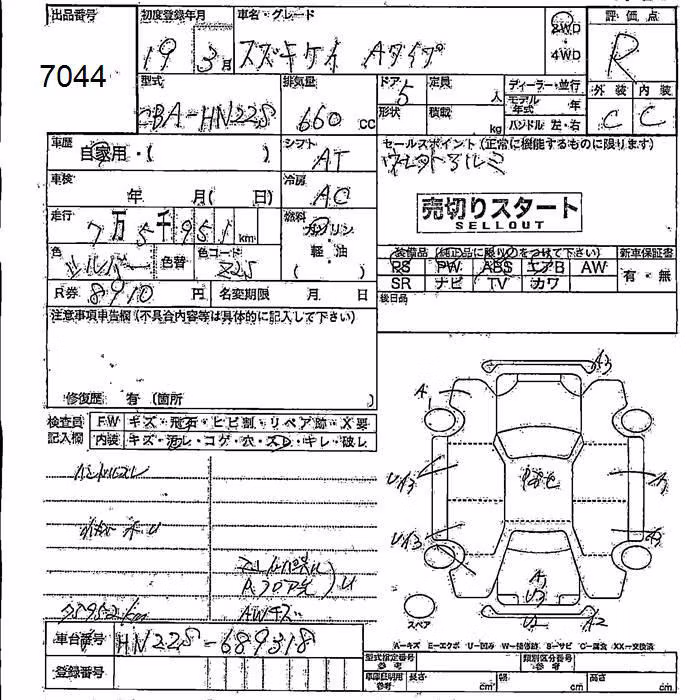 出品番号
7044
初度登録年月
19 3月
車名・グレード
スズキケイ Aタイプ
2WD
4WD
評価点
R
外装 内装
C C
型式
CBA-HN22S
排気量
660 cc
ドア 5
定員 人
形状
積載 kg
ディーラー・並行
モデル年式 年
ハンドル 左・右
車歴
自家用・( )
シフト
AT
車検
年 月( 日)
冷房
AC
走行
7万5千951 km
燃料
ガソリン
軽・油
( )
色
シルバー
色替
色コード
Z2S
R券 8910 円
名変期限 月 日
セールスポイント(正常に機能するものに限ります)
売切りスタート
SELLOUT
装備品 (純正品に限り○をつけて下さい)
新車保証書
PS PW ABS エアB AW
有・無
SR ナビ TV カワ
後日品
注意事項申告欄(不具合内容等は具体的に記入して下さい)
修復歴 有 (箇所 )
検査員
記入欄
FW キズ・飛石・ヒビ割・リペア跡・X要
内装 キズ・汚レ・コゲ・穴・スレ・キレ・破レ
ハンドルスレ
AWキズ
75952km
車台番号
HN22S-689318
登録番号
スペア
A-キズ E-エクボ U-凹み W-補修跡 S-サビ C-腐食 XX-交換済
型式指定番号
参考
類別区分番号
参考
車庫証明用
参考
長さ cm
幅 cm
高さ cm